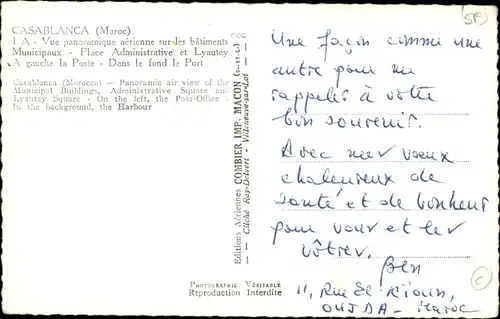 CASABLANCA (Maroc)
1 A - Vue panoramique aérienne sur des bâtiments
Municipaux - Place Administrative et Lyautey
A gauche la Poste - Dans le fond le Port
Casablanca (Morocco) - Panoramic air view of the
Municipal Buildings, Administrative Square and
Lyautey Square - On the left, the Post-Office -
In the background, the Harbour
Editions Aériennes COMBIER IMP. MACON (S.-et-L.)
Cliché Ray-Delvert - Villeneuve-sur-Lot
PHOTOGRAPHIE VÉRITABLE
Reproduction Interdite
SF
Une façon comme une
autre pour me
rappeler à votre
bon souvenir.
Avec mes vœux
chaleureux de
santé et de bonheur
pour vous et les
vôtres.
Ben
11, Rue El
OUJDA - Maroc
C